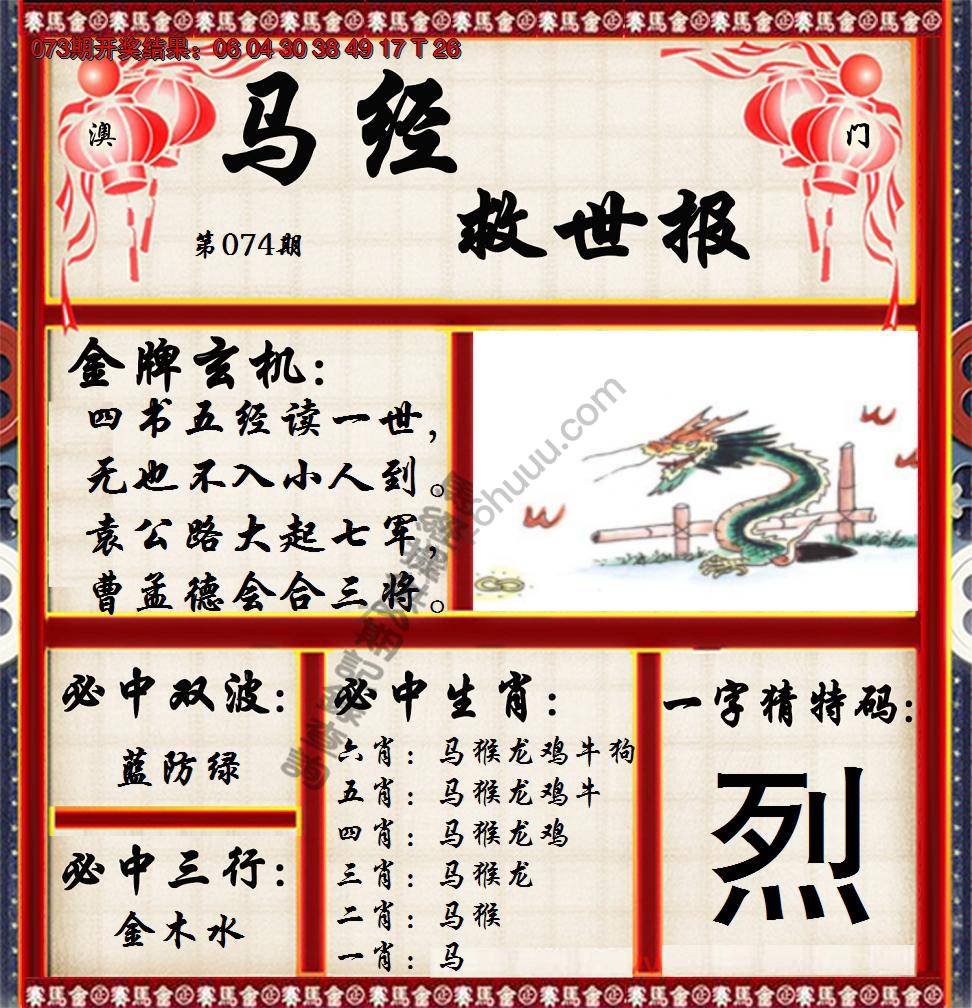 赛馬會
073期开奖结果：06 04 30 38 49 17 T 26
澳
门
马经
救世报
第074期
金牌玄机：
四书五经读一世，
无也不入小人到。
袁公路大起七军，
曹孟德会合三将。
必中双波：
蓝防绿
必中三行：
金木水
必中生肖：
六肖：马猴龙鸡牛狗
五肖：马猴龙鸡牛
四肖：马猴龙鸡
三肖：马猴龙
二肖：马猴
一肖：马
一字猜特码：
烈